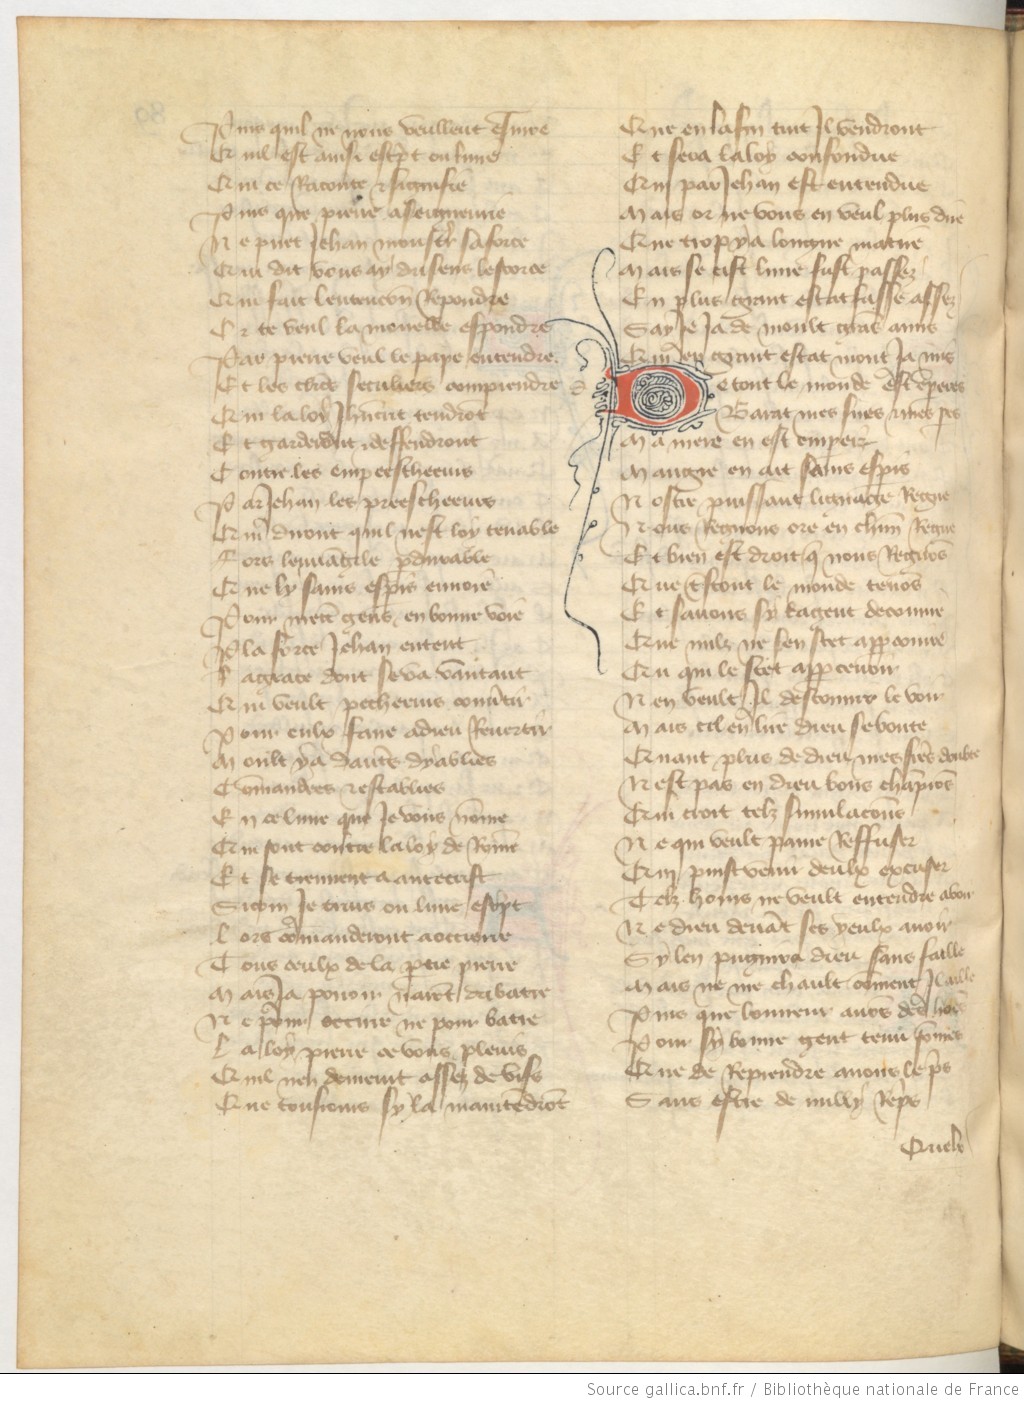 Puis quil ne nous veullent ensuivre
Quil est ainsi escript ou livre
Qui ce Raconte et signifie
Puis que pierre a seigneurie
Ne puet Jehan monstrer sa force
Qui dit vous ay du sens lescorce
Qui fait lentencion Repondre
Or te veul la mouelle espondre
Par pierre veul le pape entendre
Et les clers seculiers comprendre
Qui la loy Jhesucrist tendront
Et garderont et deffendront
Contre les empeescheeurs
Par Jehan les preescheeurs
Qui diront quil nest loy tenable
Fors levangile pardurable
Que ly sains esperis envoie
Pour metre gens en bonne voie
Par la force Jehan entent
La grace dont se va vantant
Qui veult pecheeurs convertir
Pour eulx faire a dieu Revertir
Moult y a dautres dyablies
Commandees et establies
En ce livre que Je vous nomme
Qui sont contre la loy de Romme
Et se tiennent a antecrist
Sicom Je truis ou livre escript
Lors commanderont a occierre
Tous ceulx de la partie pierre
Mais Ja povoir naront dabatre
Ne pour occirre ne pour batre
La loy pierre ce vous plevis
Quil nen demeurt assez de vifs
Que tousiours sy la maintendront
Que en la fin tuit Il vendront
Et sera la loy confondue
Qui par Jehan est entendue
Mais or ne vous en veul plus dire
Que trop y a longue matire
Mais se cist livre fust passez
En plus grant estat fusse assez
Say Je Ja de moult grans amis
Qui en grant estat mont Ja mis
De tout le monde est empereres
Barat mes sires et mes peres
Ma mere en est emperiz
Maugre en ait sains esperis
Nostre puissant lignage Regne
Nous Regnons ore en chascun Regne
Et bien est droit que nous Regnons
Que trestout le monde tenons
Et savons sy les gent decoivre
Que nulz ne sen scet appercoivre
Ou qui le scet appercevoir
Nen veult Il descouvrir le voir
Mais cil en lire dieu se boute
Quant plus de dieu mes freres doubte
Nest pas en dieu bons champions
Qui croit telz simulacions
Ne qui veult paine Reffuser
Qui puist venir deulx excuser
Telz homs ne veult entendre a voir
Ne dieu devant ses yeulx avoir
Sy len pugnira dieu sans faille
Mais ne me chault comment Il aille
Puis que lonneur avons des hommes
Pour sy bonne gent tenu sommes
Que de Reprendre avons le pris
Sans estre de nulluy Repris
Quelx